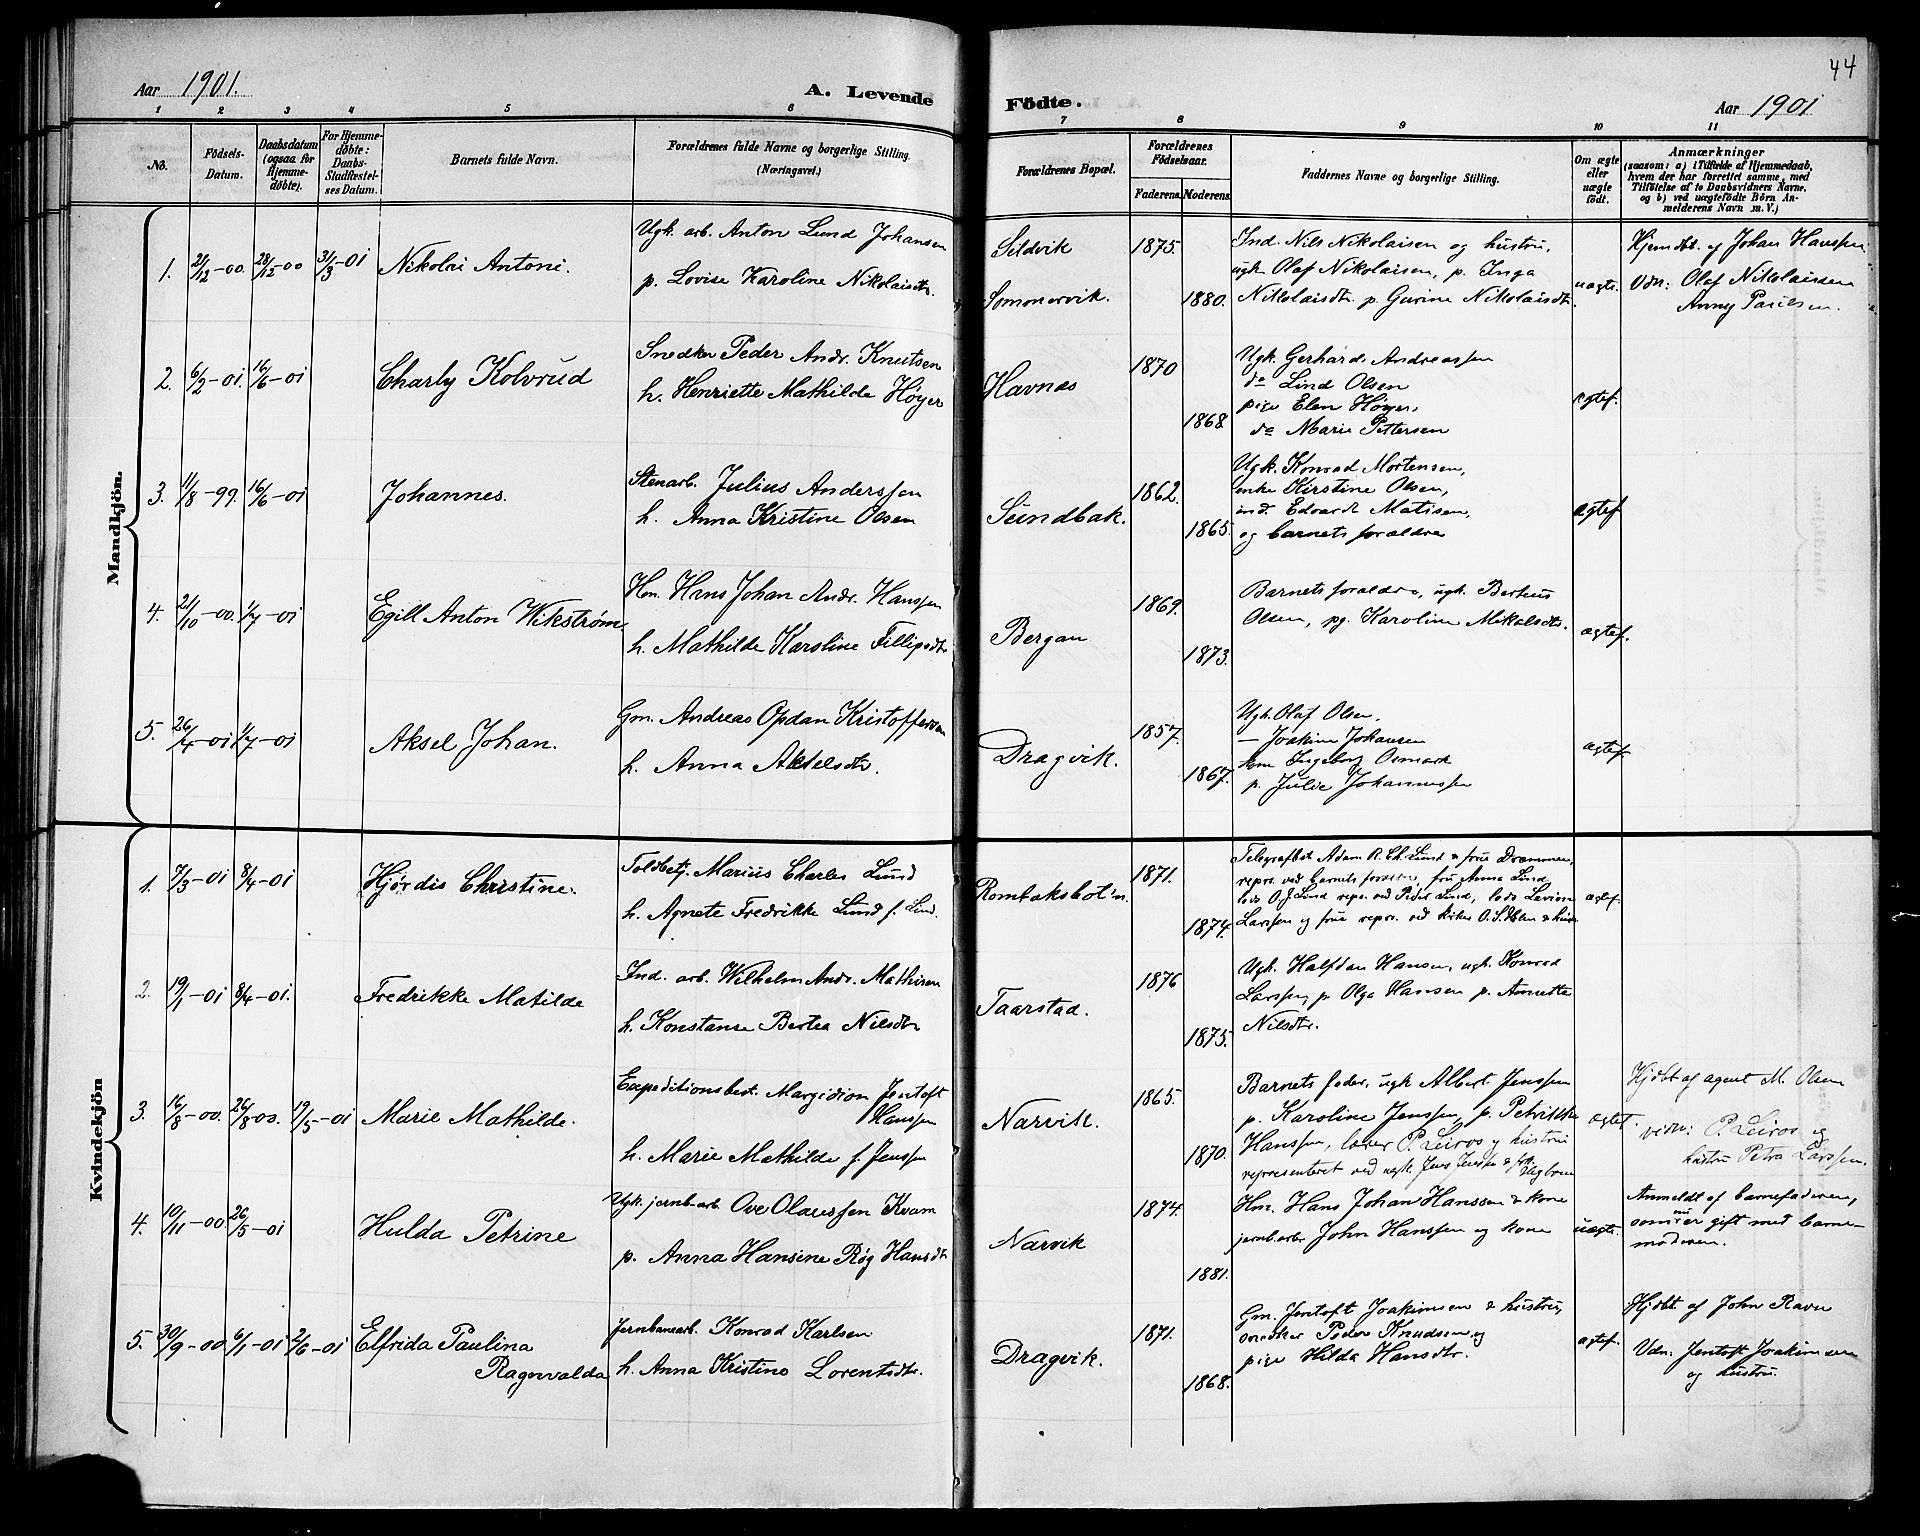 44
Aar 1901.
A. Levende
Födte.
Aar 1901
1 2 3 4 5 6 7 8 9 10 11
No.
Födsels-
Datum.
Daabsdatum
(ogsaa for
Hjemme-
döbte).
For Hjemme-
döbte:
Daabs-
Stadfæstel-
ses Datum.
Barnets fulde Navn.
Forældrenes fulde Navne og borgerlige Stilling.
(Næringsvei.)
Forældrenes Bopæl.
Forældrenes
Födselsaar.
Faderens.
Moderens.
Faddernes Navne og borgerlige Stilling.
Om ægte
eller
uægte
født.
Anmærkninger
(saasom: a) i Tilfælde af Hjemmedaab,
hvem der har forrettet samme, med
Tilföielse af to Daabsvidners Navne.
og b) ved uægtefödte Börn An-
melderens Navn m. V.)
Mandkjön.
1. 21/12-00. 28/12-00 31/3-01 Nikolai Antoni.
Ugk. arb. Anton Lund Johansen
p. Lovise Karoline Nikolaisdtr.
Sildvik
Sommervik.
1875.
1880.
Ind. Nils Nikolaisen og hustru,
ugk. Olaf Nikolaisen, p. Inga
Nikolaisdtr. p. Gurine Nikolaisdtr.
uægte.
Hjemdbt. af Johan Hanssen
Vdn: Olaf Nikolaissen
Anny Paulsen.
2. 6/2-01. 16/6-01 Charly Kolvrud
Snedker Peder Andr. Knutsen
h. Henriette Mathilde Høyer
Havnæs
1870
1868
Ugk. Gerhard Andreassen
do Lind Olsen
pige Elen Høyer,
do Marie Pettersen
ægtef.
3. 11/8-99. 16/6-01 Johannes.
Stenarb. Julius Anderssen
h. Anna Kristine Olsen
Sundbak.
1862.
1865.
Ugk. Konrad Mortensen,
enke Kirstine Olsen,
ind. Edvardt Matisen,
og barnets forældre
ægtef
4. 21/10-00. 1/7-01 Egill Anton Wikstrøm
Hm. Hans Johan Andr. Hanssen
h. Mathilde Karoline Fillipsdtr
Bergan
1869.
1873.
Barnets forældre, ugk. Berteus
Olsen, pg. Karoline Mikalsdtr.
ægtef.
5. 26/4-01 1/7-01 Aksel Johan.
Gm. Andreas Opdan Kristoffersen
h. Anna Akselsdtr.
Dragvik.
1857.
1867.
Ugk. Olaf Olsen,
— Joakim Johansen
Ingeborg Osmark
p. Julie Johannessen
ægtef.
Kvindekjön
1. 7/3-01 8/4-01 Hjørdis Christine.
Toldbetj. Marius Charles Lund
h. Agnete Fredrikke Lund f. Lind.
Rombaksbotn.
1871.
1874.
Telegrafbst Adam R. Ch. Lund & frue Drammen,
repr. ved barnets forældre, fru Anna Lind,
lods O. J. Lind repr. ved Peder Lind, lods Levison
Larssen og frue repr. ved kirkes. O. S. &
ægtef.
2. 19/1-01 8/4-01. Fredrikke Matilde
Ind. arb. Wilhelm Andr. Mathisen
h. Konstanse Bertea Nilsdtr
Taarstad.
1876
1875.
Ugk. Halfdan Hansen, ugk. Konrad
Larssen, p. Olga Hansen p. Annette
Nilsdtr.
3. 16/8-00. 26/8-00. 19/5-01 Marie Mathilde.
Expeditionsbest. Margidion Jentoft
Hanssen
h. Marie Mathilde f. Jenssen
Narvik.
1865.
1870.
Barnets fader, ugk Albert Jenssen
p. Karoline Jenssen, p. Petrikke
Hanssen, lærer P. Leiros og hustru
representeret ved ugk. Jens Jenssen & frk.
ægtef.
Hjdbt af agent M. Olsen
vidn: P. Leiros og
hustru Petra Larssen.
4. 10/11-00. 26/5-01 Hulda Petrine
Ugk. jernb.arb. Ove Olaussen Kvam
p. Anna Hansine Røg Hansdtr
Narvik
1874.
1881.
Hm. Hans Johan Hanssen & kone
jernb.arb. John Hanssen og kone
uægte.
Anmeldt af barnefaderen,
som nu er gift med barne-
moderen.
5. 30/9-00 6/1-01 2/6-01 Elfrida Paulina
Ragnvalda
Jernbanearb. Konrad Karlsen
h. Anna Kristine Lorentsdtr.
Dragvik.
1871.
1868.
Gm. Jentoft Joakimsen & hustru,
snedker Peder Knudsen og
pige Hilda Hansdtr.
ægtef.
Hjdbt af John Ravn
Vdn: Jentoft Joakimsen
og hustru.